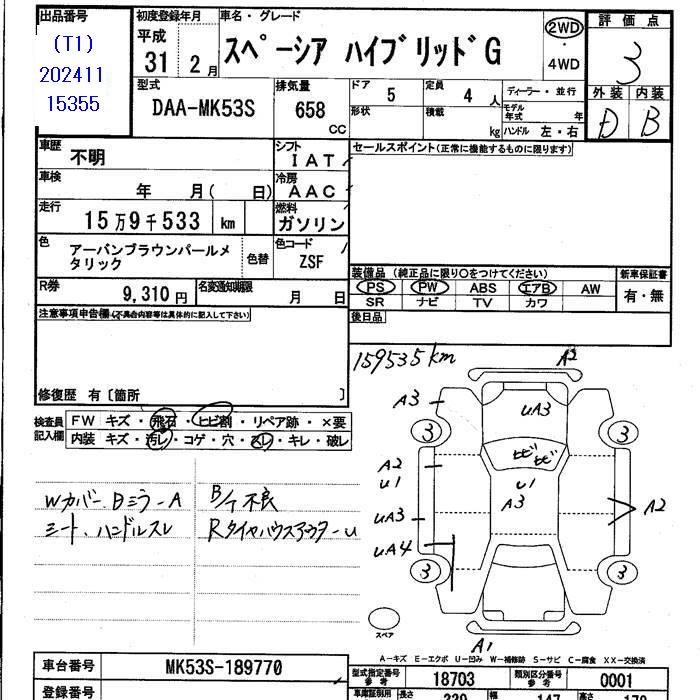 出品番号
(T1)
202411
15355
初度登録年月
平成
31 2 月
車名・グレード
スペーシア ハイブリッドG
2WD
・
4WD
評価点
3
外装 内装
D B
型式
DAA-MK53S
排気量
658
CC
ドア
5
定員
4 人
形状
積載
kg
ディーラー・並行
モデル年式 年
ハンドル 左・右
車歴
不明
シフト
IAT
車検
年 月( 日)
冷房
AAC
走行
15万9千533 km
燃料
ガソリン
色
アーバンブラウンパールメ
タリック
色替
色コード
ZSF
R券
9,310 円
名変通知期限
月 日
セールスポイント(正常に機能するものに限ります)
装備品 (純正品に限り○をつけてください)
新車保証書
PS PW ABS エアB AW
SR ナビ TV カワ
有・無
後日品
注意事項申告欄(不具合内容等は具体的に記入して下さい)
修復歴 有〔箇所 〕
検査員
記入欄
FW キズ・飛石・ヒビ割・リペア跡・×要
内装 キズ・汚レ・コゲ・穴・スレ・キレ・破レ
Wカバー、Bミラ-A
シート、ハンドルスレ
B/T不良
RタイヤハウスアウターU
159535km
A2
A3
UA3
3
3
ヒビ ヒビ
A2
U1
U1
A3
UA3
A2
UA4
3
3
スペア
A1
A-キズ E-エクボ U-凹み W-補修跡 S-サビ C-腐食 XX-交換済
車台番号
MK53S-189770
登録番号
型式指定番号
参考
18703
類別区分番号
参考
0001
長さ
339
幅
147
高さ